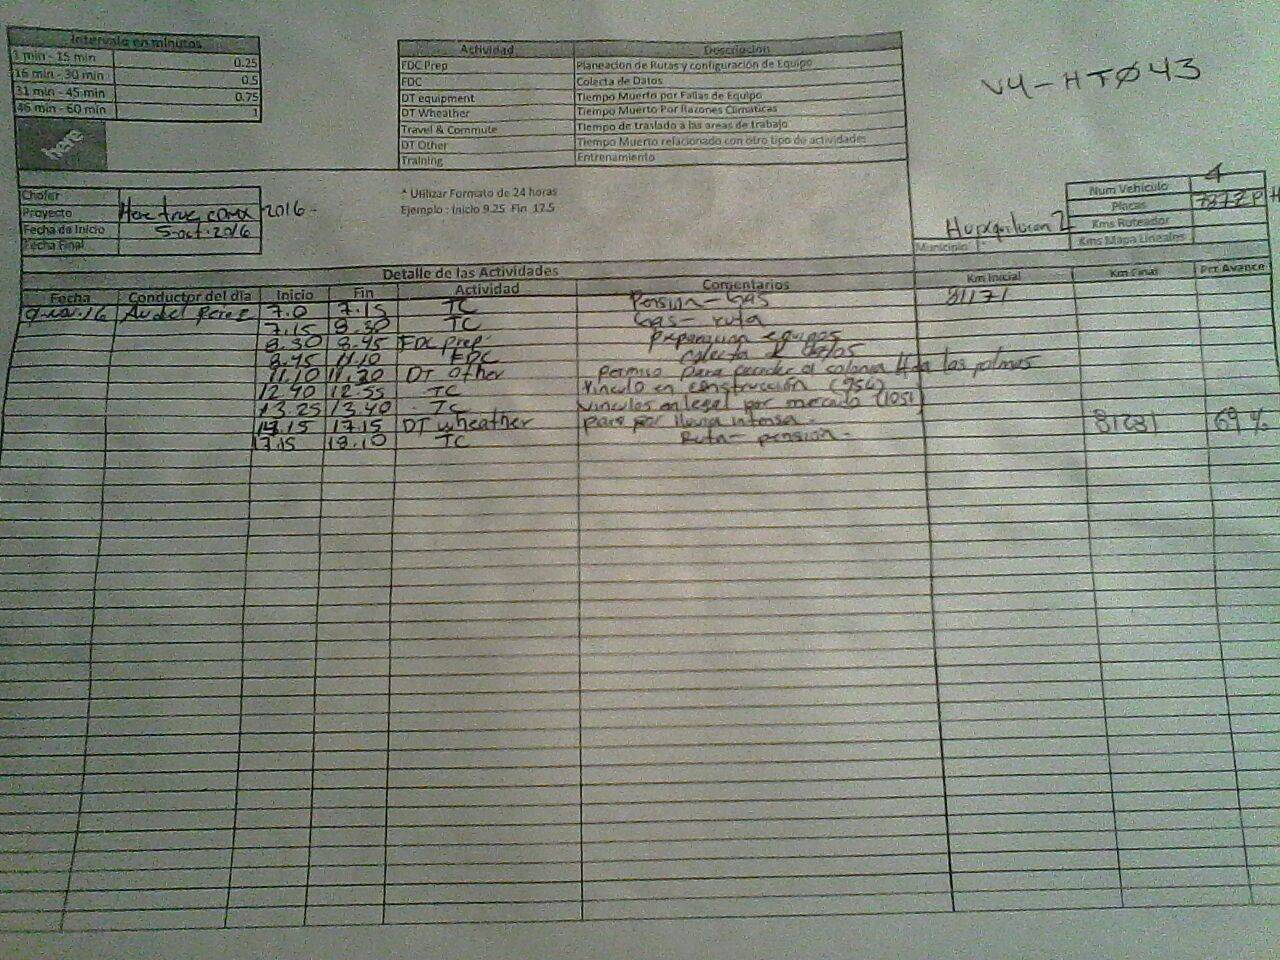 Intervalo en minutos
1 min - 15 min 0.25
16 min - 30 min 0.5
31 min - 45 min 0.75
46 min - 60 min 1
here
Actividad Descripcion
FDC Prep Planeacion de Rutas y configuración de Equipo
FDC Colecta de Datos
DT equipment Tiempo Muerto por Fallas de Equipo
DT Wheather Tiempo Muerto Por Razones Climaticas
Travel & Commute Tiempo de traslado a las areas de trabajo
DT Other Tiempo Muerto relacionado con otro tipo de actividades
Training Entrenamiento
V4-HTØ43
Chofer
Proyecto 2016-
Fecha de Inicio 5-oct-2016
Fecha Final
* Utilizar Formato de 24 horas
Ejemplo : Inicio 9.25 Fin 17.5
Num Vehiculo 4
Placas
Kms Ruteador
Kms Mapa Lineales
Municipio Huixquilucan 2
Detalle de las Actividades
Fecha Conductor del día Inicio Fin Actividad Comentarios Km Inicial Km Final Pct Avance
7.0 7.15 TC Pension-Gas 81171
7.15 8.30 TC Gas-ruta
8.30 8.45 FDC prep. preparacion equipos
8.45 11.10 FDC colecta de datos
11.10 11.20 DT Other permiso para acceder a colonia Hda las palmas
12.40 12.55 TC Vinculo en construcción (954)
13.25 13.40 TC Vinculos en legal por mercado (1051
17.15 DT wheather paro por lluvia intensa. 81281 69%
17.15 18.10 TC Ruta-pension-